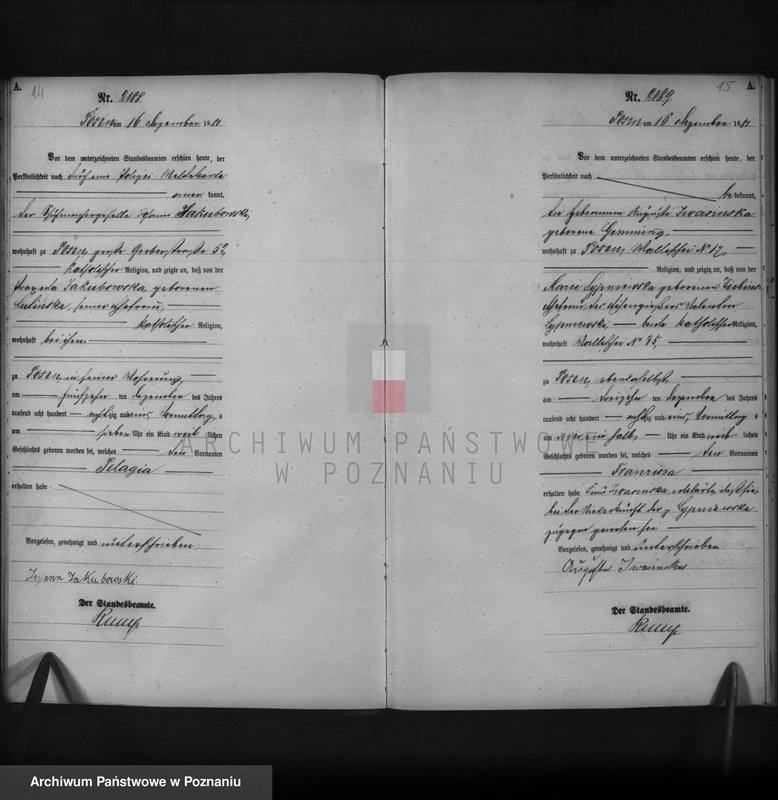 A. 14
Nr. 2188
Posen am 16 Dezember 1881
Vor dem unterzeichneten Standesbeamten erschien heute, der
Persönlichkeit nach durch eine Polizei-Meldekarte
aner kannt,
der Johann Jakubowski,
wohnhaft zu Posen, große Gerberstraße 52,
katholischer Religion, und zeigte an, daß von der
Jakubowska geborenen
seiner Ehefrau,
katholischer Religion,
wohnhaft bei ihm
zu Posen, in seiner Wohnung,
am fünfzehn ten Dezember des Jahres
tausend acht hundert achtzig und eins, Vormittag, s
um sieben Uhr ein Kind weib lichen
Geschlechts geboren worden sei, welches den Vornamen
Pelagia
erhalten habe
Vorgelesen, genehmigt und unterschrieben
Johann Jakubowski
Der Standesbeamte.
15 A.
Nr. 2189
Posen am 16 Dezember 1881
Vor dem unterzeichneten Standesbeamten erschien heute, der
Persönlichkeit nach
be bekannt,
die Hebamme Auguste Iwasinska
geborene
wohnhaft zu Posen, Wallischei No 17,
Religion, und zeigte an, daß von der
Marie Sypniewska geborenen
Ehefrau des Valentin
Sypniewski, beide katholischer Religion,
wohnhaft Wallischei No 35,
zu Posen, ebendaselbst
am dreizehn ten Dezember des Jahres
tausend acht hundert achtzig und eins, Vormittag
um ein halb Uhr ein Kind weib lichen
Geschlechts geboren worden sei, welches den Vornamen
Franziska
erhalten habe. Iwasinska erklärte, daß sie
bei der Niederkunft der p. Sypniewska
zugegen gewesen sei
Vorgelesen, genehmigt und unterschrieben
Auguste Iwasinska
Der Standesbeamte.
ARCHIWUM PAŃSTWOWE
W POZNANIU
Archiwum Państwowe w Poznaniu